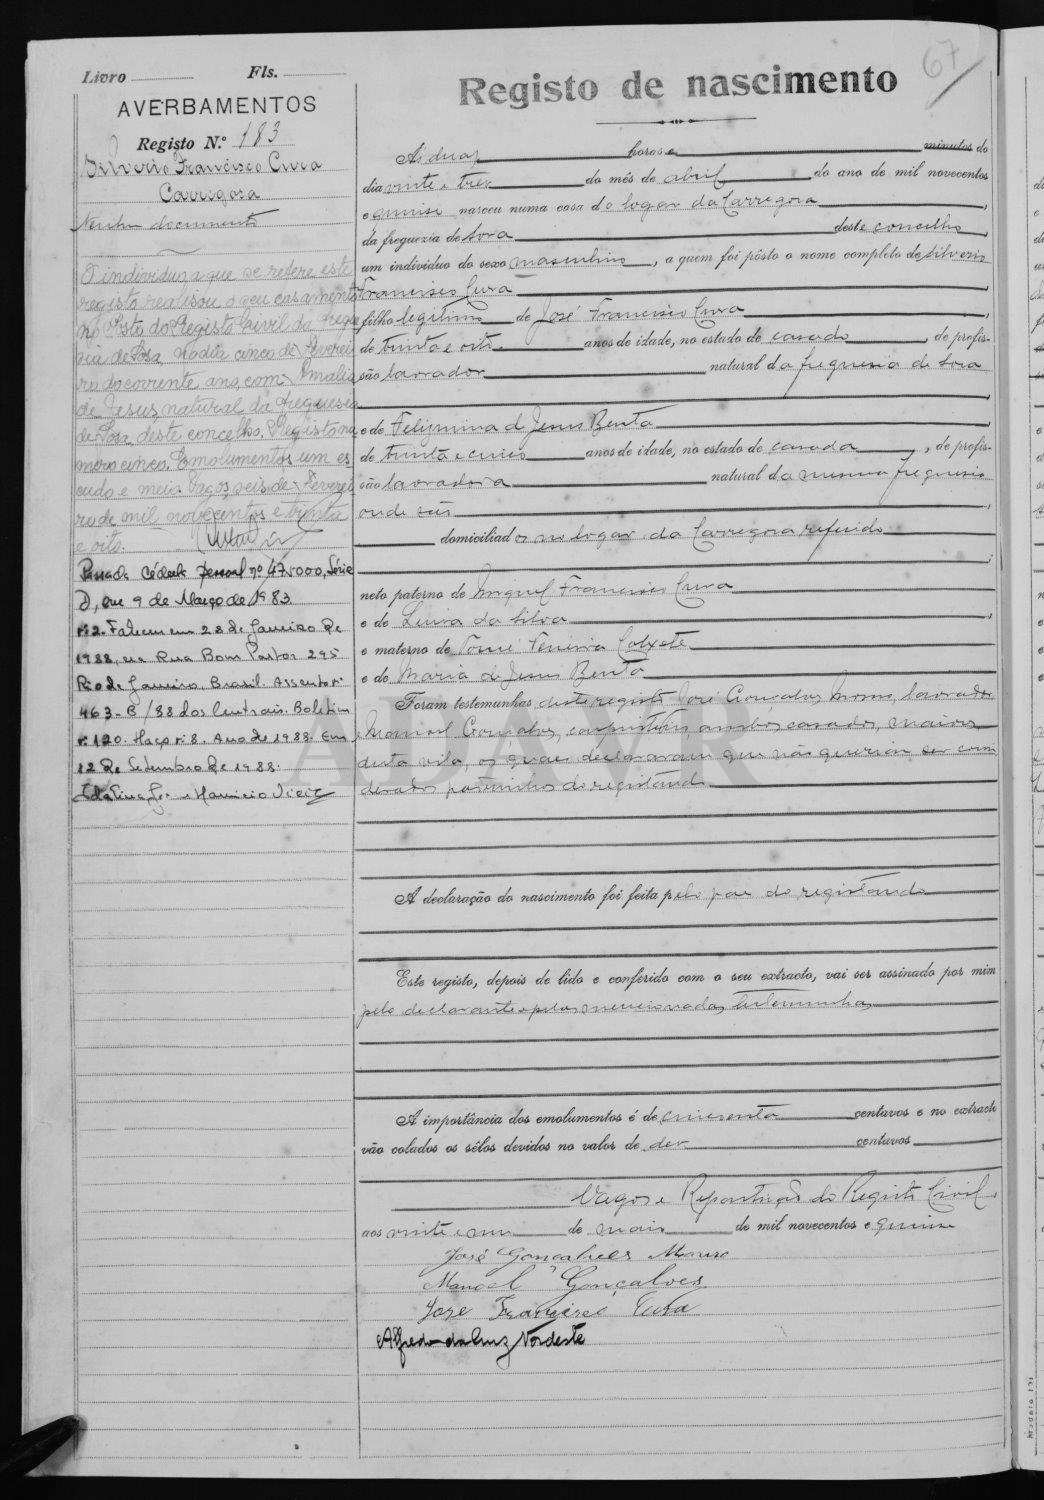 67
Livro Fls.
AVERBAMENTOS
Registo N.º 183
Silverio Francisco Cura
Carregosa
Nenhum documento
O individuo a que se refere este
registo realisou o seu casamento
no Posto do Registo Civil da fregue
sia de Sosa, no dia cinco de Feverei
ro do corrente ano, com Amalia
de Jesus, natural da freguesia
de Sosa deste concelho. Registo nu
mero cinco. Emolumentos um es
cudo e meio. Vagos, seis de Feverei
ro de mil novecentos e trinta
e oito.
Passada Cédula Pessoal nº 475000, Série
D, em 9 de Março de 1983
nº 2 - Faleceu em 28 de Janeiro de
1988, na Rua Bom Pastor 295
Rio de Janeiro, Brasil. Assento nº
463-B/88 dos Centrais. Boletim
nº 120. Maço nº 8. Ano de 1988. Em
12 de Setembro de 1988.
Registo de nascimento
Ás duas horas e minutos do
dia vinte e tres do mês de abril do ano de mil novecentos
e quinse nasceu numa casa do logar da Carregosa
da freguezia de Sosa deste concelho,
um individuo do sexo masculino, a quem foi pôsto o nome completo de Silverio
Francisco Cura
filho legitimo de José Francisco Cura,
de trinta e oito anos de idade, no estado de casado, de profis-
são lavrador natural da freguesia de Sosa
e de Felismina de Jesus Benta,
de trinta e cinco anos de idade, no estado de casada, de profis-
são lavradora natural da mesma freguesia
onde são
domiciliados no logar da Carregosa referido
neto paterno de Miguel Francisco Cura
e de Luisa da Silva,
e materno de Tomé Ferreira
e de Maria de Jesus Benta
Foram testemunhas deste registo José Gonçalves Mouro, lavrador
e Manoel Gonçalves, carpinteiro, ambos casados, maiores
desta vila, os quaes declararam que não queriam ser consi
derados padrinhos do registando
A declaração do nascimento foi feita pelo pae do registando
Este registo, depois de lido e conferido com o seu extracto, vai ser assinado por mim
pelo declarante e pelas mencionadas testemunhas
A importância dos emolumentos é de cincoenta centavos e no extracto
vão colados os sêlos devidos no valor de dez centavos
Vagos e Repartição do Registo Civil,
aos vinte e um de maio de mil novecentos e quinse
José Gonçalves Mouro
Manoel Gonçalves
José Francisco Cura
Alfredo da Cruz Nordeste
ADAVR